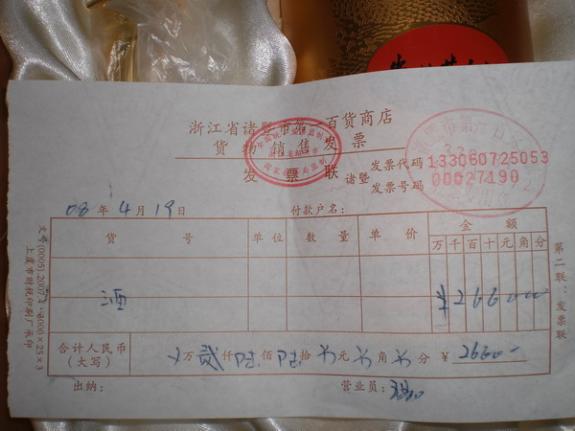 浙江省诸暨市第一百货商店
货物销售发票
发票联
诸暨
发票代码 133060725053
发票号码 00027190
08 年 4 月 19 日
付款户名:
货号 单位 数量 单价 金额
万 千 百 十 元 角 分
酒 ¥ 2 6 6 0 0 0
合计人民币
(大写)
万 贰 仟 陆 佰 陆 拾 元 角 分 ¥ 2660-
出纳: 营业员:
第二联:发票联
上虞市朝税印刷厂承印